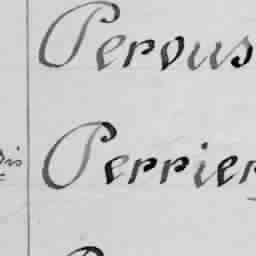 Perous
Perrier